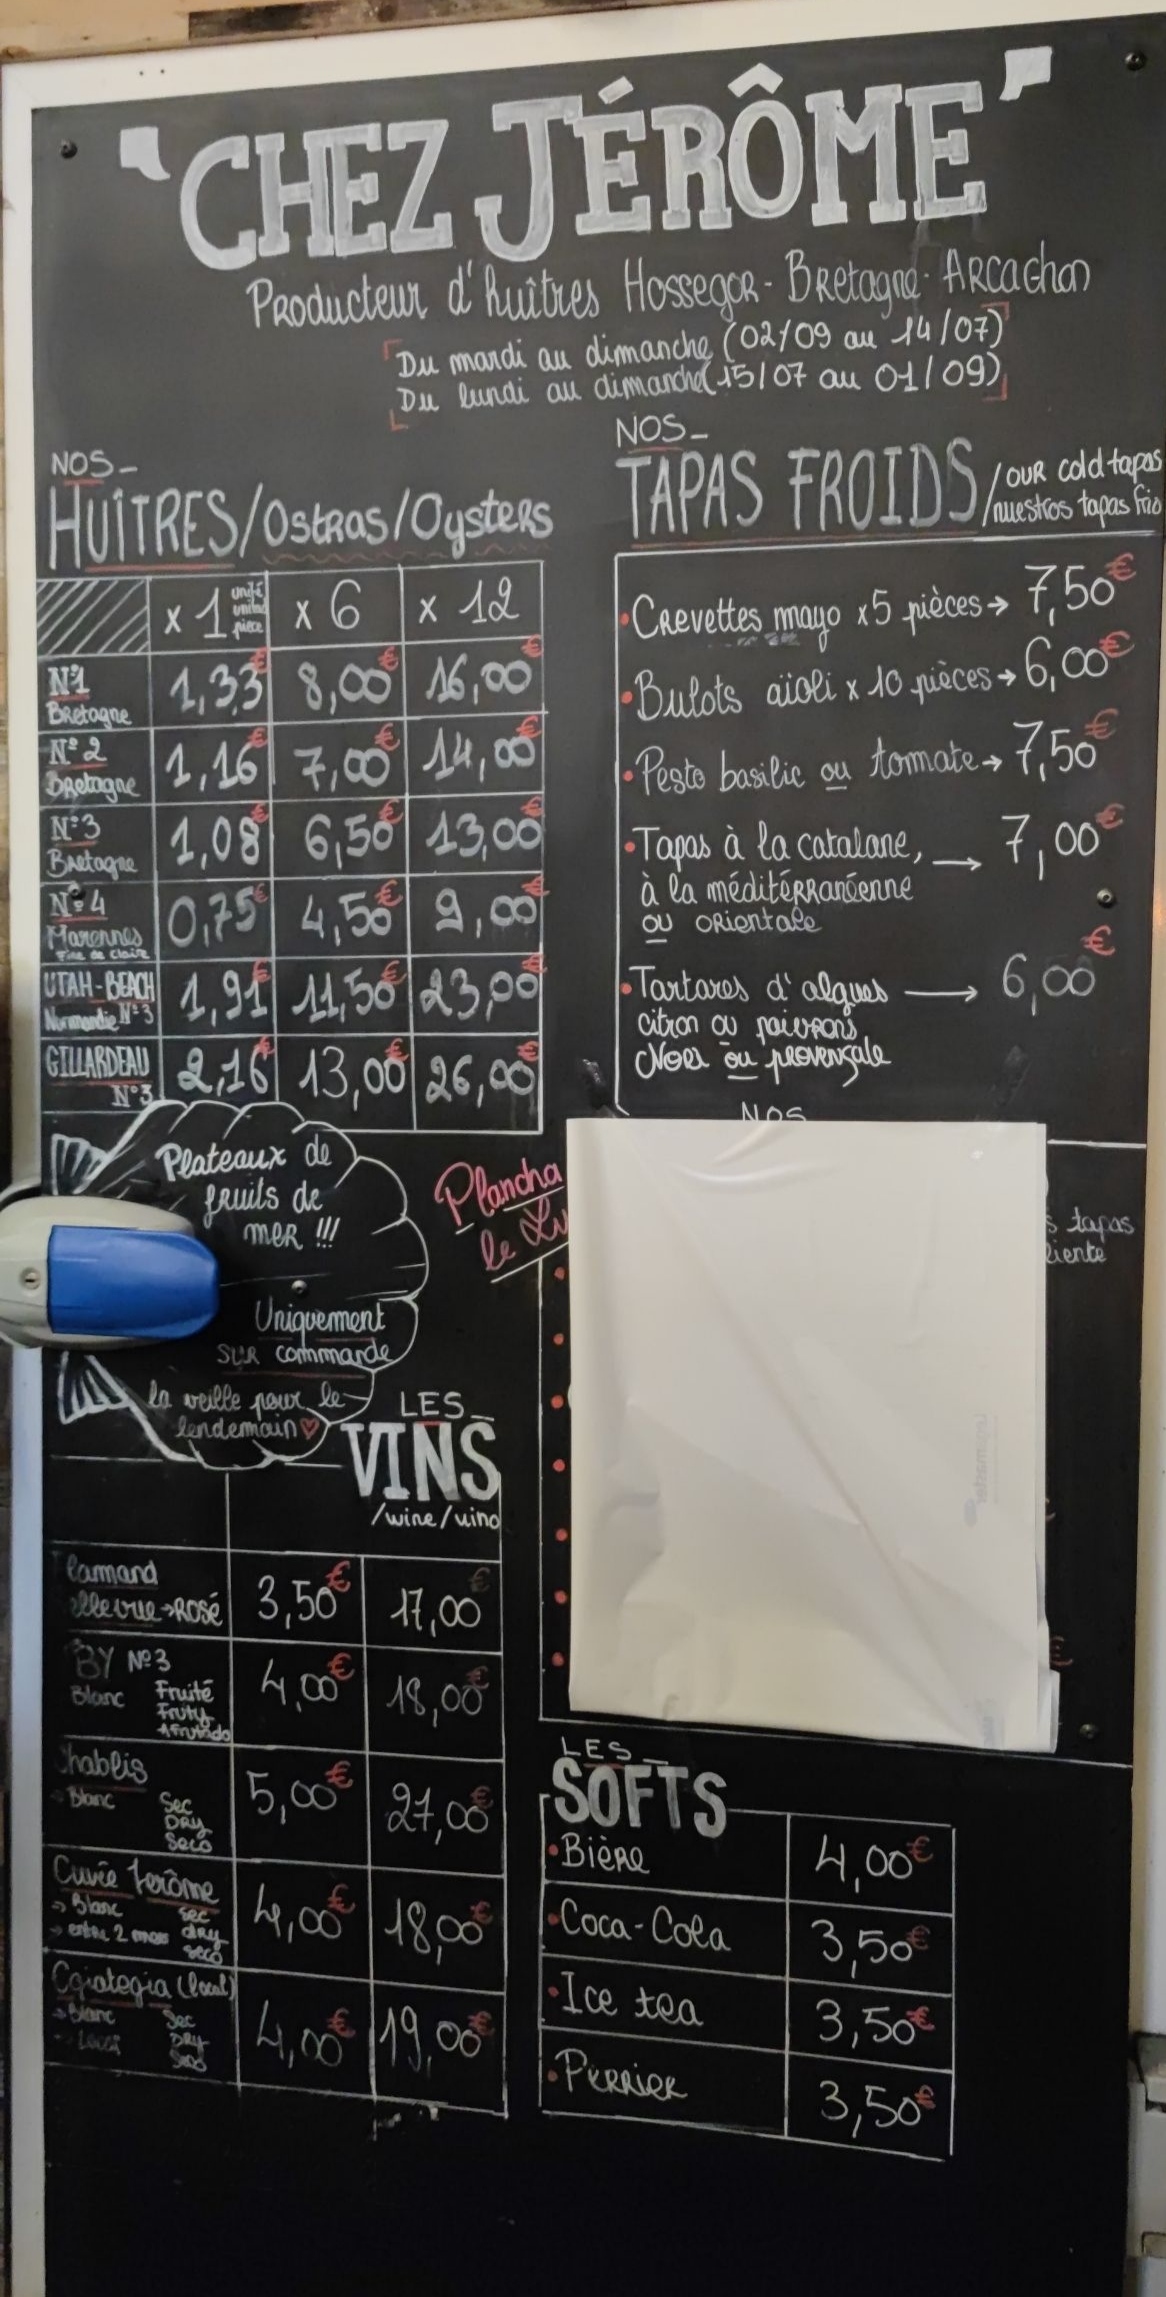 "CHEZ JÉRÔME"
Producteur d'huîtres Hossegor - Bretagne - Arcachon
Du mardi au dimanche (02/09 au 14/07)
Du lundi au dimanche (15/07 au 01/09)
NOS_
HUÎTRES/Ostras/Oysters
x 1 unité unidad piece x 6 x 12
N°1 1,33€ 8,00€ 16,00€
Bretagne
N°2 1,16€ 7,00€ 14,00€
Bretagne
N°3 1,08€ 6,50€ 13,00€
Bretagne
N°4 0,75€ 4,50€ 9,00€
Marennes
Fine de claire
UTAH-BEACH 1,91€ 11,50€ 23,00€
Normandie N°3
GILLARDEAU 2,16€ 13,00€ 26,00€
N°3
NOS_
TAPAS FROIDS/OUR cold tapas
/nuestros tapas frio
• Crevettes mayo x5 pièces → 7,50€
• Bulots aïoli x 10 pièces → 6,00€
• Pesto basilic ou tomate → 7,50€
• Tapas à la catalane, → 7,00€
à la méditérranéenne
ou orientale
• Tartares d'algues → 6,00€
citron ou poivrons
Noei ou provençale
Plateaux de
fruits de
mer !!!
Uniquement
sur commande
la veille pour le
lendemain♡
NOS
Plancha
le
s tapas
liente
LES_
VINS
/wine/vino
lamand 3,50€ 17,00€
ellevue → Rosé
BY N°3 4,00€ 18,00€
Blanc Fruité
Fruty
Afrutado
hablis 5,00€ 27,00€
Blanc Sec
DRY
Seco
Cuvée Jerôme 4,00€ 18,00€
→ Blanc sec
→ entre 2 mers dry
seco
Egiategia (local) 4,00€ 19,00€
→ Blanc Sec
DRY
Seco
LES_
SOFTS
• Bière 4,00€
• Coca-Cola 3,50€
• Ice tea 3,50€
• Perrier 3,50€